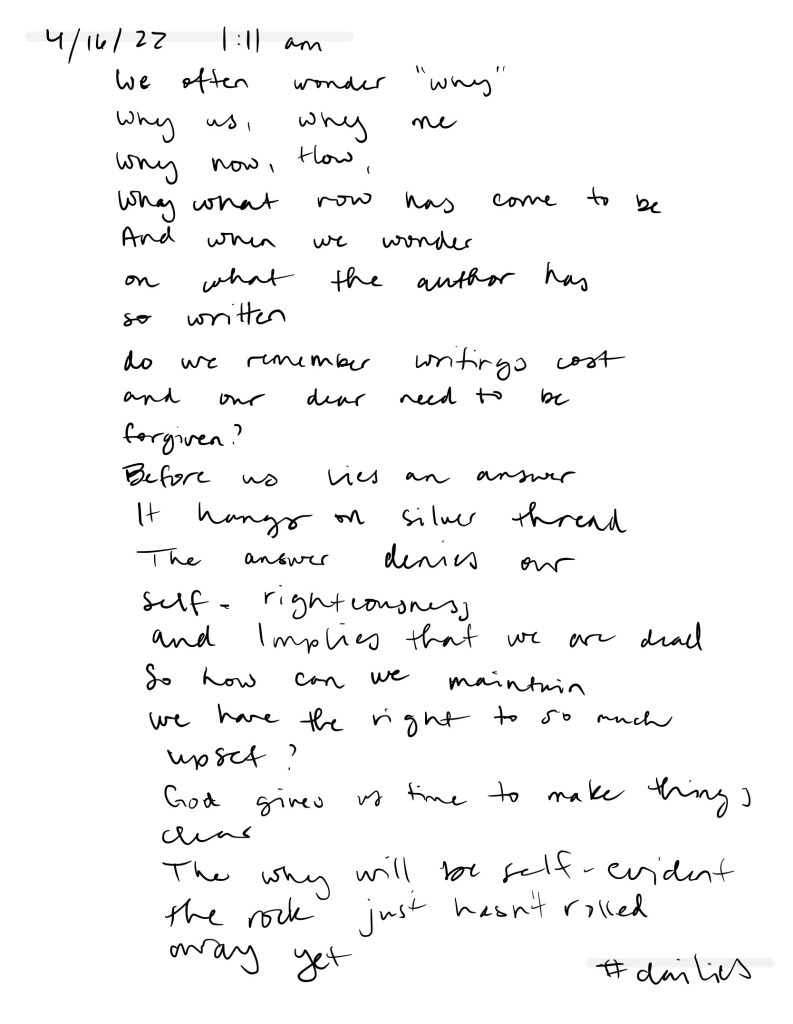 4/16/22 1:11 am
We often wonder "why"
Why us, why me
Why now, How,
Why what now has come to be
And when we wonder
on what the author has
so written
do we remember writings cost
and our dear need to be
forgiven?
Before us lies an answer
It hangs on silver thread
The answer denies our
self-righteousness
and Implies that we are dead
So how can we maintain
we have the right to so much
upset?
God gives us time to make things
clear
The why will be self-evident
the rock just hasn't rolled
away yet
#dailies